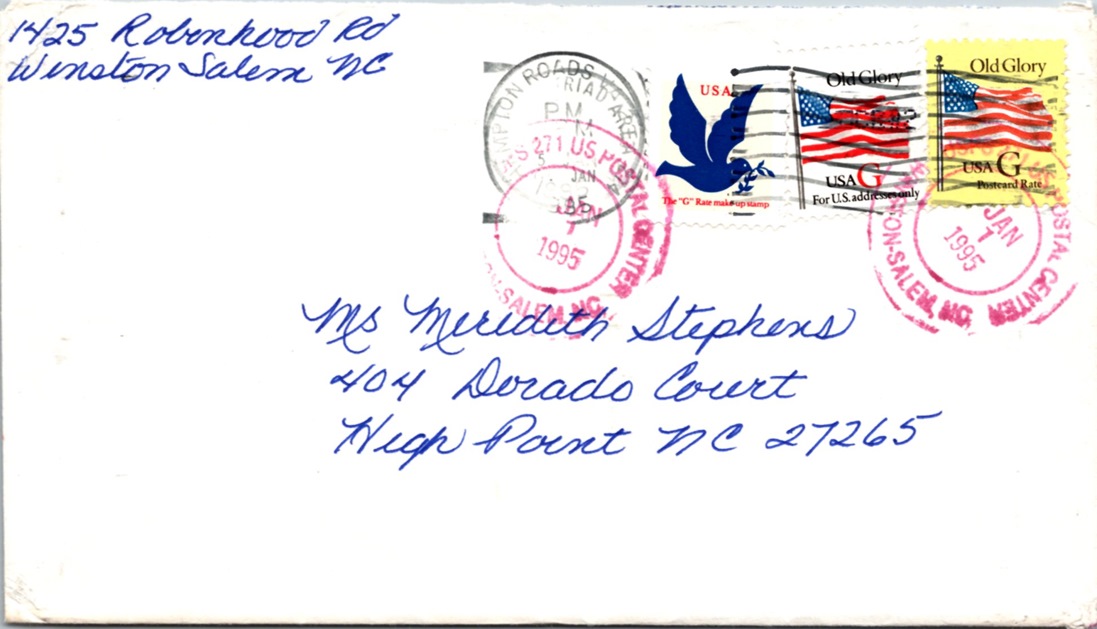 1425 Robinhood Rd
Winston Salem NC
HAMPTON ROADS
TRIAD AREA
PM
JAN
USA
The "G" Rate make-up stamp
Old Glory
USA G
For U.S. addresses only
Old Glory
USA G
Postcard Rate
271 US POSTAL CENTER
JAN
1
1995
N-SALEM, NC
POSTAL CENTER
JAN
1
1995
WINSTON-SALEM, NC
Ms Meredith Stephens
404 Dorado Court
High Point NC 27265